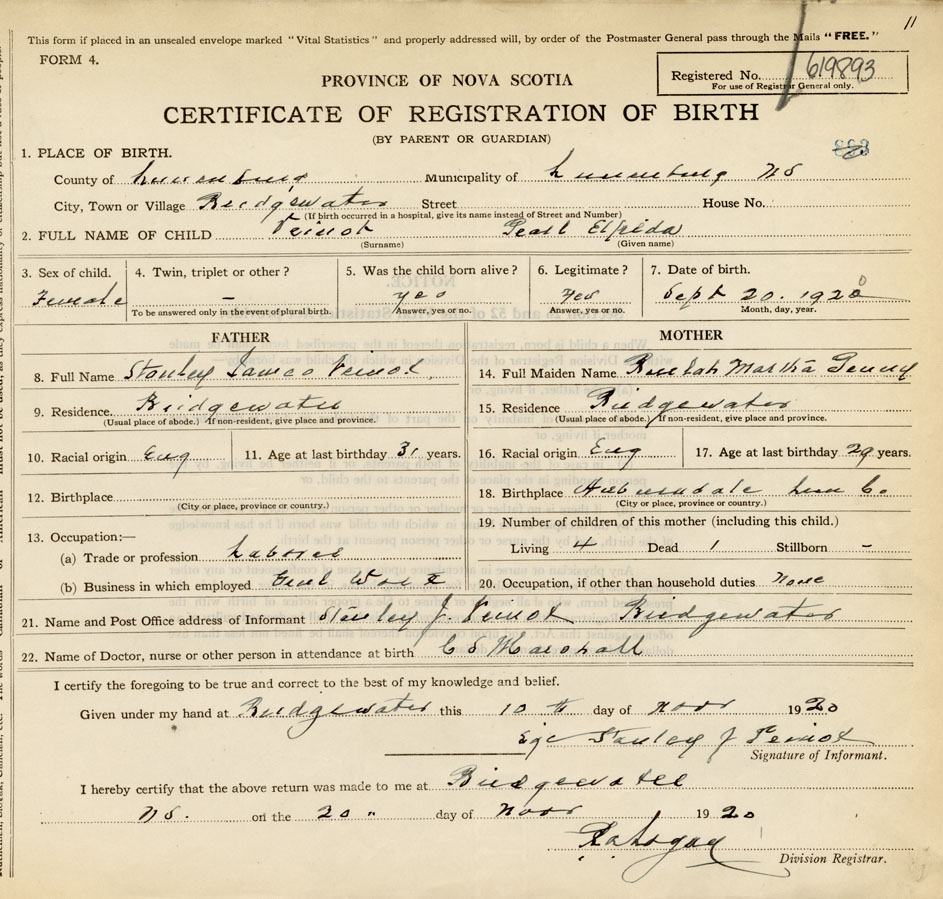 11
This form if placed in an unsealed envelope marked "Vital Statistics" and properly addressed will, by order of the Postmaster General pass through the Mails "FREE."
FORM 4.
Registered No. 619893
For use of Registrar General only.
PROVINCE OF NOVA SCOTIA
CERTIFICATE OF REGISTRATION OF BIRTH
(BY PARENT OR GUARDIAN)
1. PLACE OF BIRTH.
County of Lunenburg Municipality of Lunenburg NS
City, Town or Village Bridgewater Street House No.
(If birth occurred in a hospital, give its name instead of Street and Number)
2. FULL NAME OF CHILD Veinot Pearl Elfreda
(Surname) (Given name)
3. Sex of child. 4. Twin, triplet or other? 5. Was the child born alive? 6. Legitimate? 7. Date of birth.
Female – yes Yes Sept 20. 1920
To be answered only in the event of plural birth. Answer, yes or no. Answer, yes or no. Month, day, year.
FATHER MOTHER
8. Full Name Stanley James Veinot 14. Full Maiden Name Beulah Martha
9. Residence. Bridgewater 15. Residence Bridgewater
(Usual place of abode.) If non-resident, give place and province. (Usual place of abode.) If non-resident, give place and province.
10. Racial origin Eng 11. Age at last birthday 31 years. 16. Racial origin Eng 17. Age at last birthday 29 years.
12. Birthplace 18. Birthplace Auburndale Lun Co.
(City or place, province or country.) (City or place, province or country.)
19. Number of children of this mother (including this child.)
13. Occupation:—
(a) Trade or profession Laborer Living 4 Dead 1 Stillborn –
(b) Business in which employed 20. Occupation, if other than household duties None
21. Name and Post Office address of Informant Stanley J. Veinot Bridgewater
22. Name of Doctor, nurse or other person in attendance at birth Marshall
I certify the foregoing to be true and correct to the best of my knowledge and belief.
Given under my hand at Bridgewater this 10 th day of Novr 1920
Stanley J Veinot
Signature of Informant.
I hereby certify that the above return was made to me at Bridgewater
NS. on the 20 " day of Novr 1920
Division Registrar.